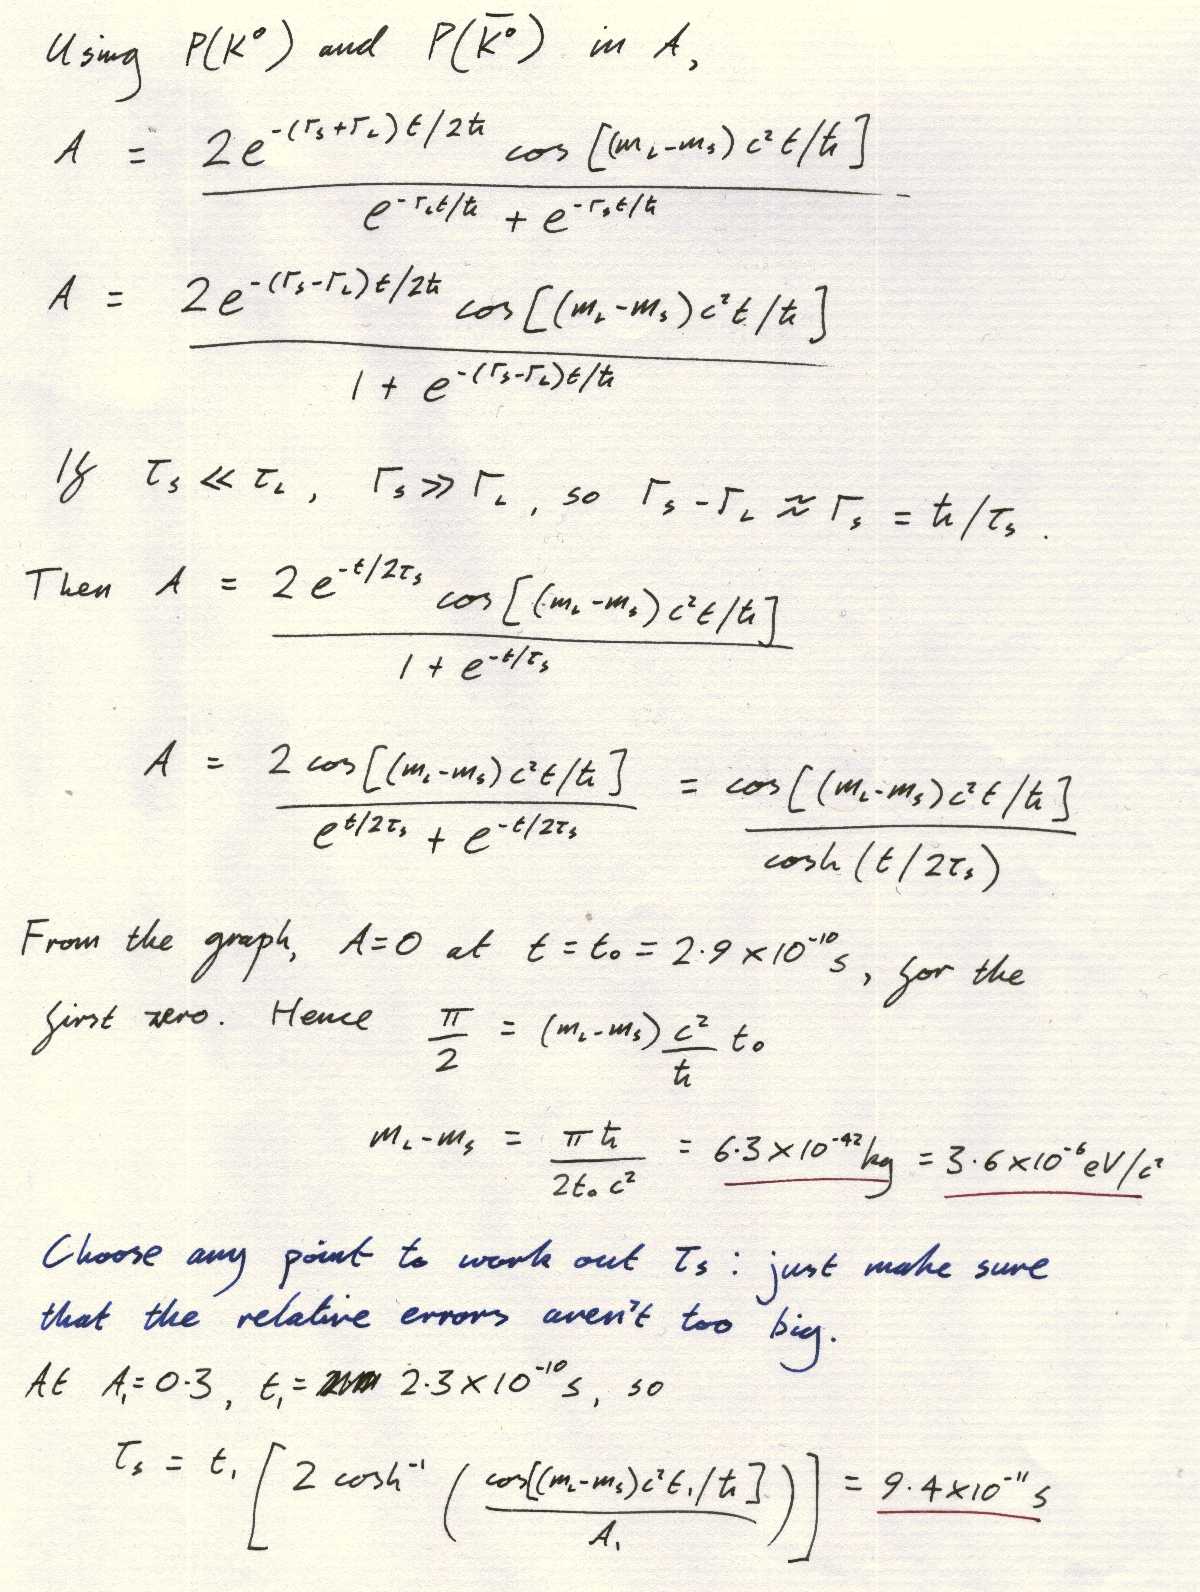 Using P(K⁰) and P(K̄⁰) in A,
A = 2e^{-(Γ_S+Γ_L)t/2ħ} cos[(m_L-m_S)c²t/ħ] / (e^{-Γ_L t/ħ} + e^{-Γ_S t/ħ})
A = 2e^{-(Γ_S-Γ_L)t/2ħ} cos[(m_L-m_S)c²t/ħ] / (1 + e^{-(Γ_S-Γ_L)t/ħ})
If τ_S ≪ τ_L, Γ_S ≫ Γ_L, so Γ_S - Γ_L ≈ Γ_S = ħ/τ_S.
Then A = 2e^{-t/2τ_S} cos[(m_L-m_S)c²t/ħ] / (1 + e^{-t/τ_S})
A = 2 cos[(m_L-m_S)c²t/ħ] / (e^{t/2τ_S} + e^{-t/2τ_S}) = cos[(m_L-m_S)c²t/ħ] / cosh(t/2τ_S)
From the graph, A=0 at t = t₀ = 2.9 × 10⁻¹⁰ s, for the
first zero. Hence π/2 = (m_L-m_S) c²/ħ t₀
m_L-m_S = πħ / 2t₀c² = 6.3 × 10⁻⁴² kg = 3.6 × 10⁻⁶ eV/c²
Choose any point to work out τ_S : just make sure
that the relative errors aren't too big.
At A₁ = 0.3, t₁ = 2.3 × 10⁻¹⁰ s, so
τ_S = t₁ [2 cosh⁻¹ (cos[(m_L-m_S)c²t₁/ħ] / A₁)] = 9.4 × 10⁻¹¹ s